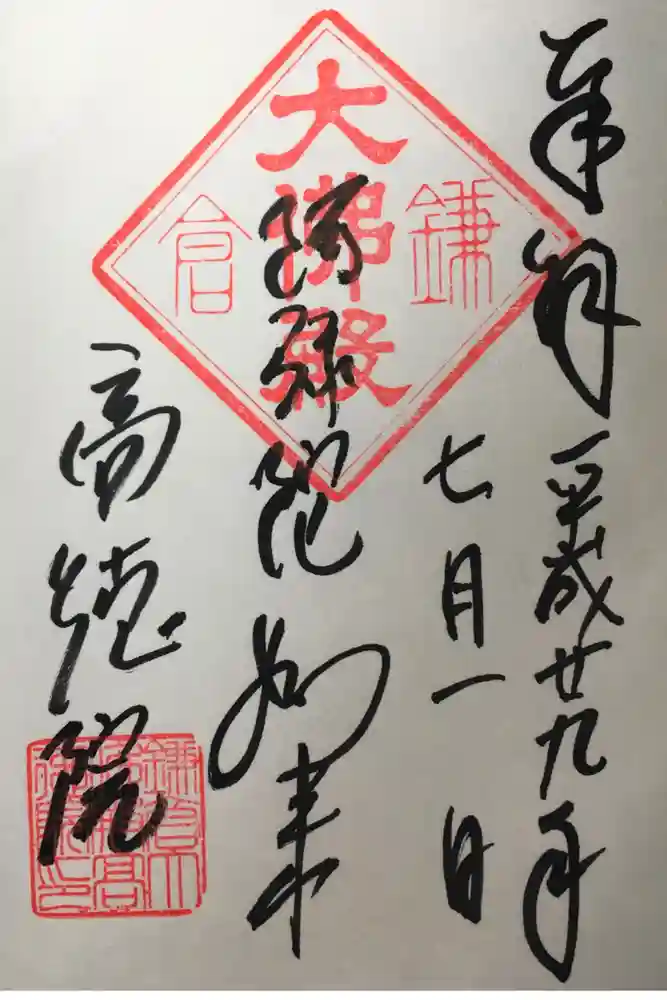 奉拝 平成廿九年
七月一日
鎌
大佛殿
倉
阿弥陀如来
高徳院